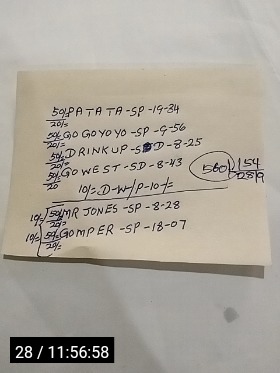 50/= PATATA-SP-19-34
20/=
50/= GOGOYOYO-SP-9-56
20/=
50/= DRINKUP-SD-8-25
20/=
50/= GOWEST-SD-8-43
20
580 154
2819
10/=.D-W/P-10-/=
10/= 50/= MR JONES-SP-8-28
20/=
10/= 50/= GOMPER-SP-18-07
20/=
28 / 11:56:58